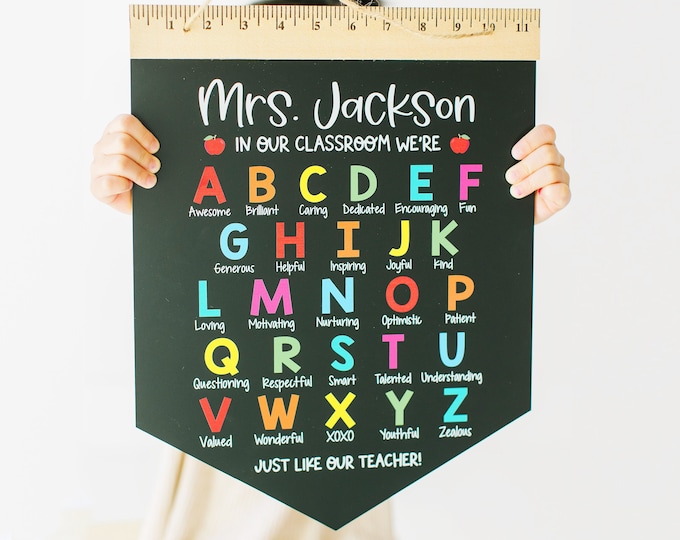 1 2 3 4 5 6 7 8 9 10 11
Mrs. Jackson
IN OUR CLASSROOM WE'RE
A B C D E F
Awesome Brilliant Caring Dedicated Encouraging Fun
G H I J K
Generous Helpful Inspiring Joyful Kind
L M N O P
Loving Motivating Nurturing Optimistic Patient
Q R S T U
Questioning Respectful Smart Talented Understanding
V W X Y Z
Valued Wonderful XOXO Youthful Zealous
JUST LIKE OUR TEACHER!